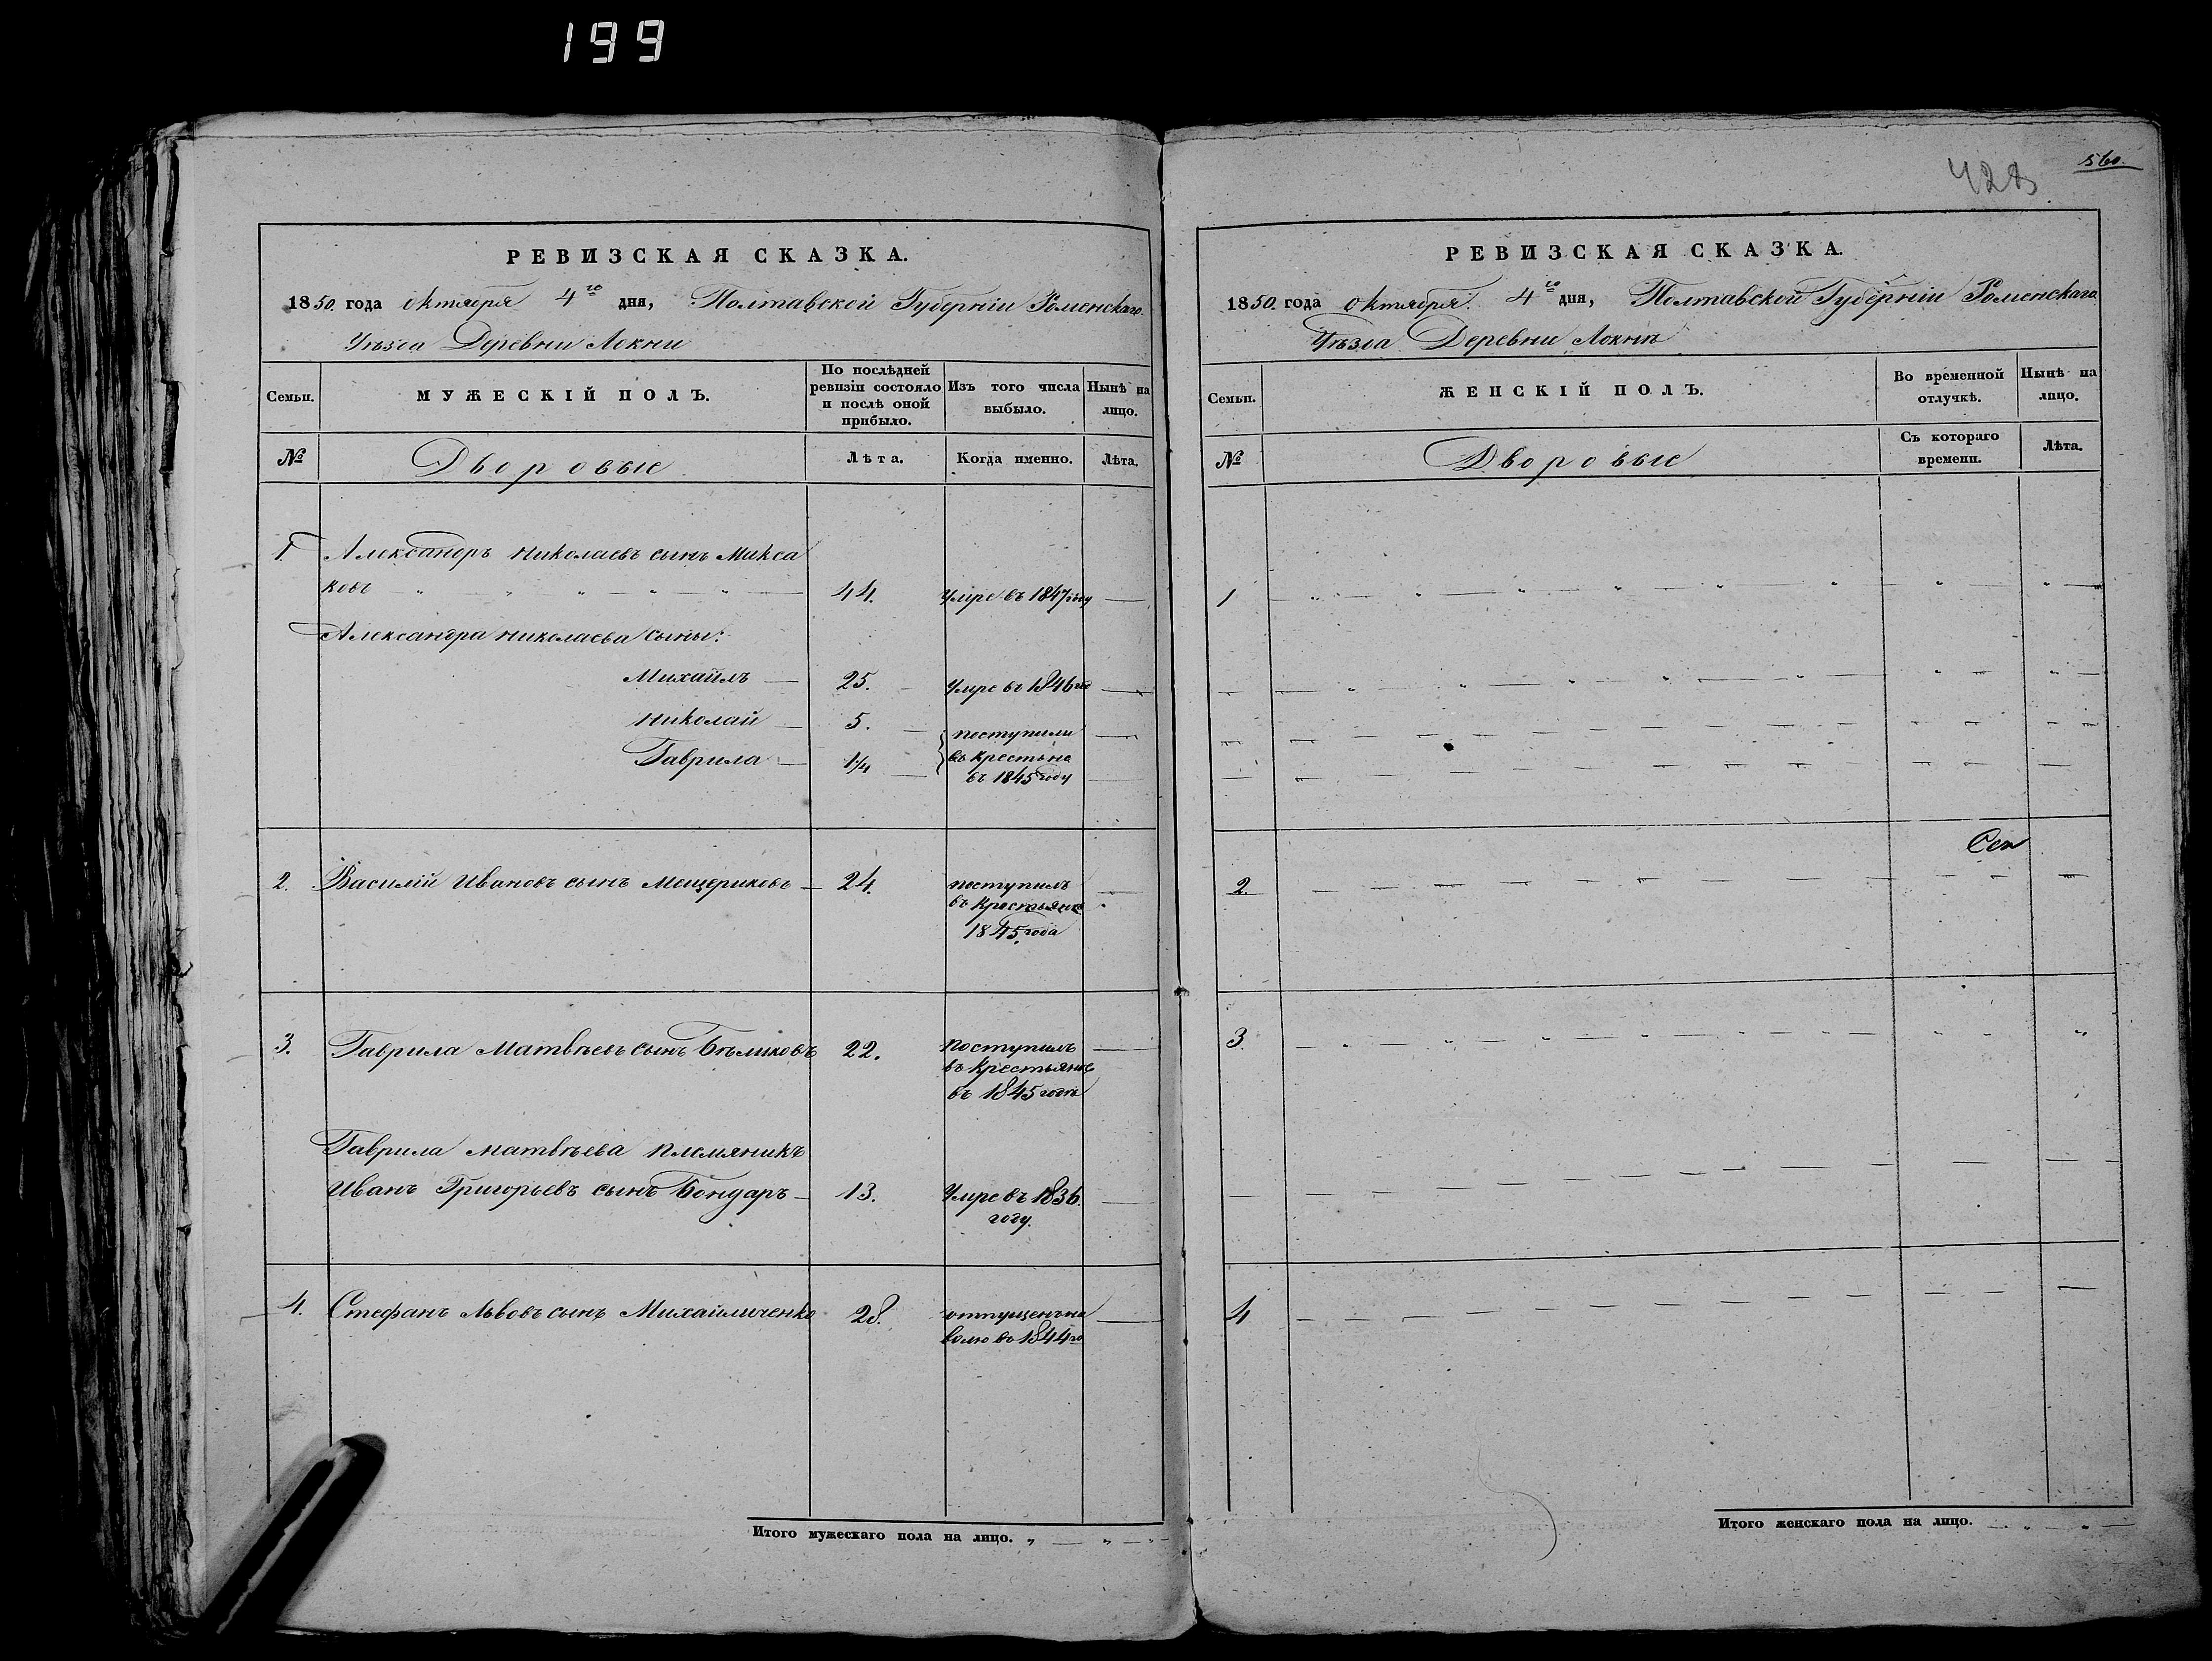 199
РЕВИЗСКАЯ СКАЗКА.
1850. года Октября 4го дня, Полтавской Губерніи Роменскаго
Уѣзда Деревни Локни
Семьи.
МУЖЕСКІЙ ПОЛЪ.
По послѣдней
ревизіи состояло
и послѣ оной
прибыло.
Изъ того числа
выбыло.
Нынѣ на
лицо.
№
Дворовые
Лѣта.
Когда именно.
Лѣта.
1. Александръ Николаевъ сынъ Макса
ковъ 44. Умре въ 1847 году
Александра Николаева сыны:
Михайлъ 25. Умре въ 1846 го
Николай 5. поступили
Гаврила 1/4 въ крестьяне
въ 1845 году
2. Василій Ивановъ сынъ Мещериковъ 24. поступилъ
въ крестьяне
1845 года
3. Гаврила Матвѣевъ сынъ Бѣликовъ 22. поступилъ
въ крестьяне
въ 1845 годѣ
Гаврила Матвѣева племяникъ
Иванъ Григорьевъ сынъ Бондаръ 13. Умре въ 1836.
году.
4. Стефанъ Львовъ сынъ Михайличенко 28. отпущенъ на
волю въ 1844 го
Итого мужескаго пола на лицо.
560.
428
РЕВИЗСКАЯ СКАЗКА.
1850. года Октября 4го дня, Полтавской Губерніи Роменскаго
Уѣзда Деревни Локнѣ
Семьи.
ЖЕНСКІЙ ПОЛЪ.
Во временной
отлучкѣ.
Нынѣ на
лицо.
№
Дворовые
Съ котораго
времени.
Лѣта.
1
Сен
2.
3.
4
Итого женскаго пола на лицо.